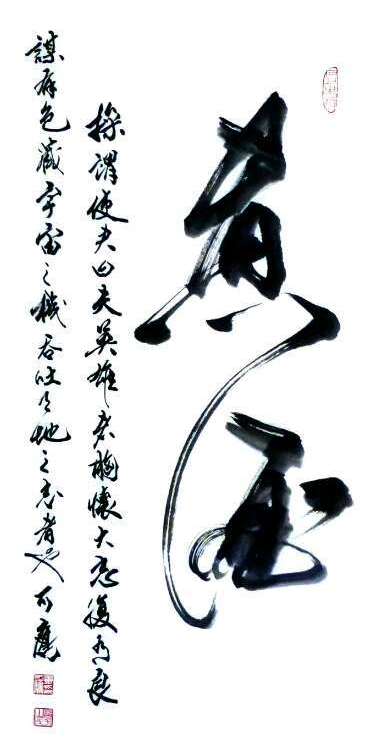 煮酒
操謂使君曰夫英雄者胸懷大志腹有良
謀有包藏宇宙之機吞吐天地之志者也